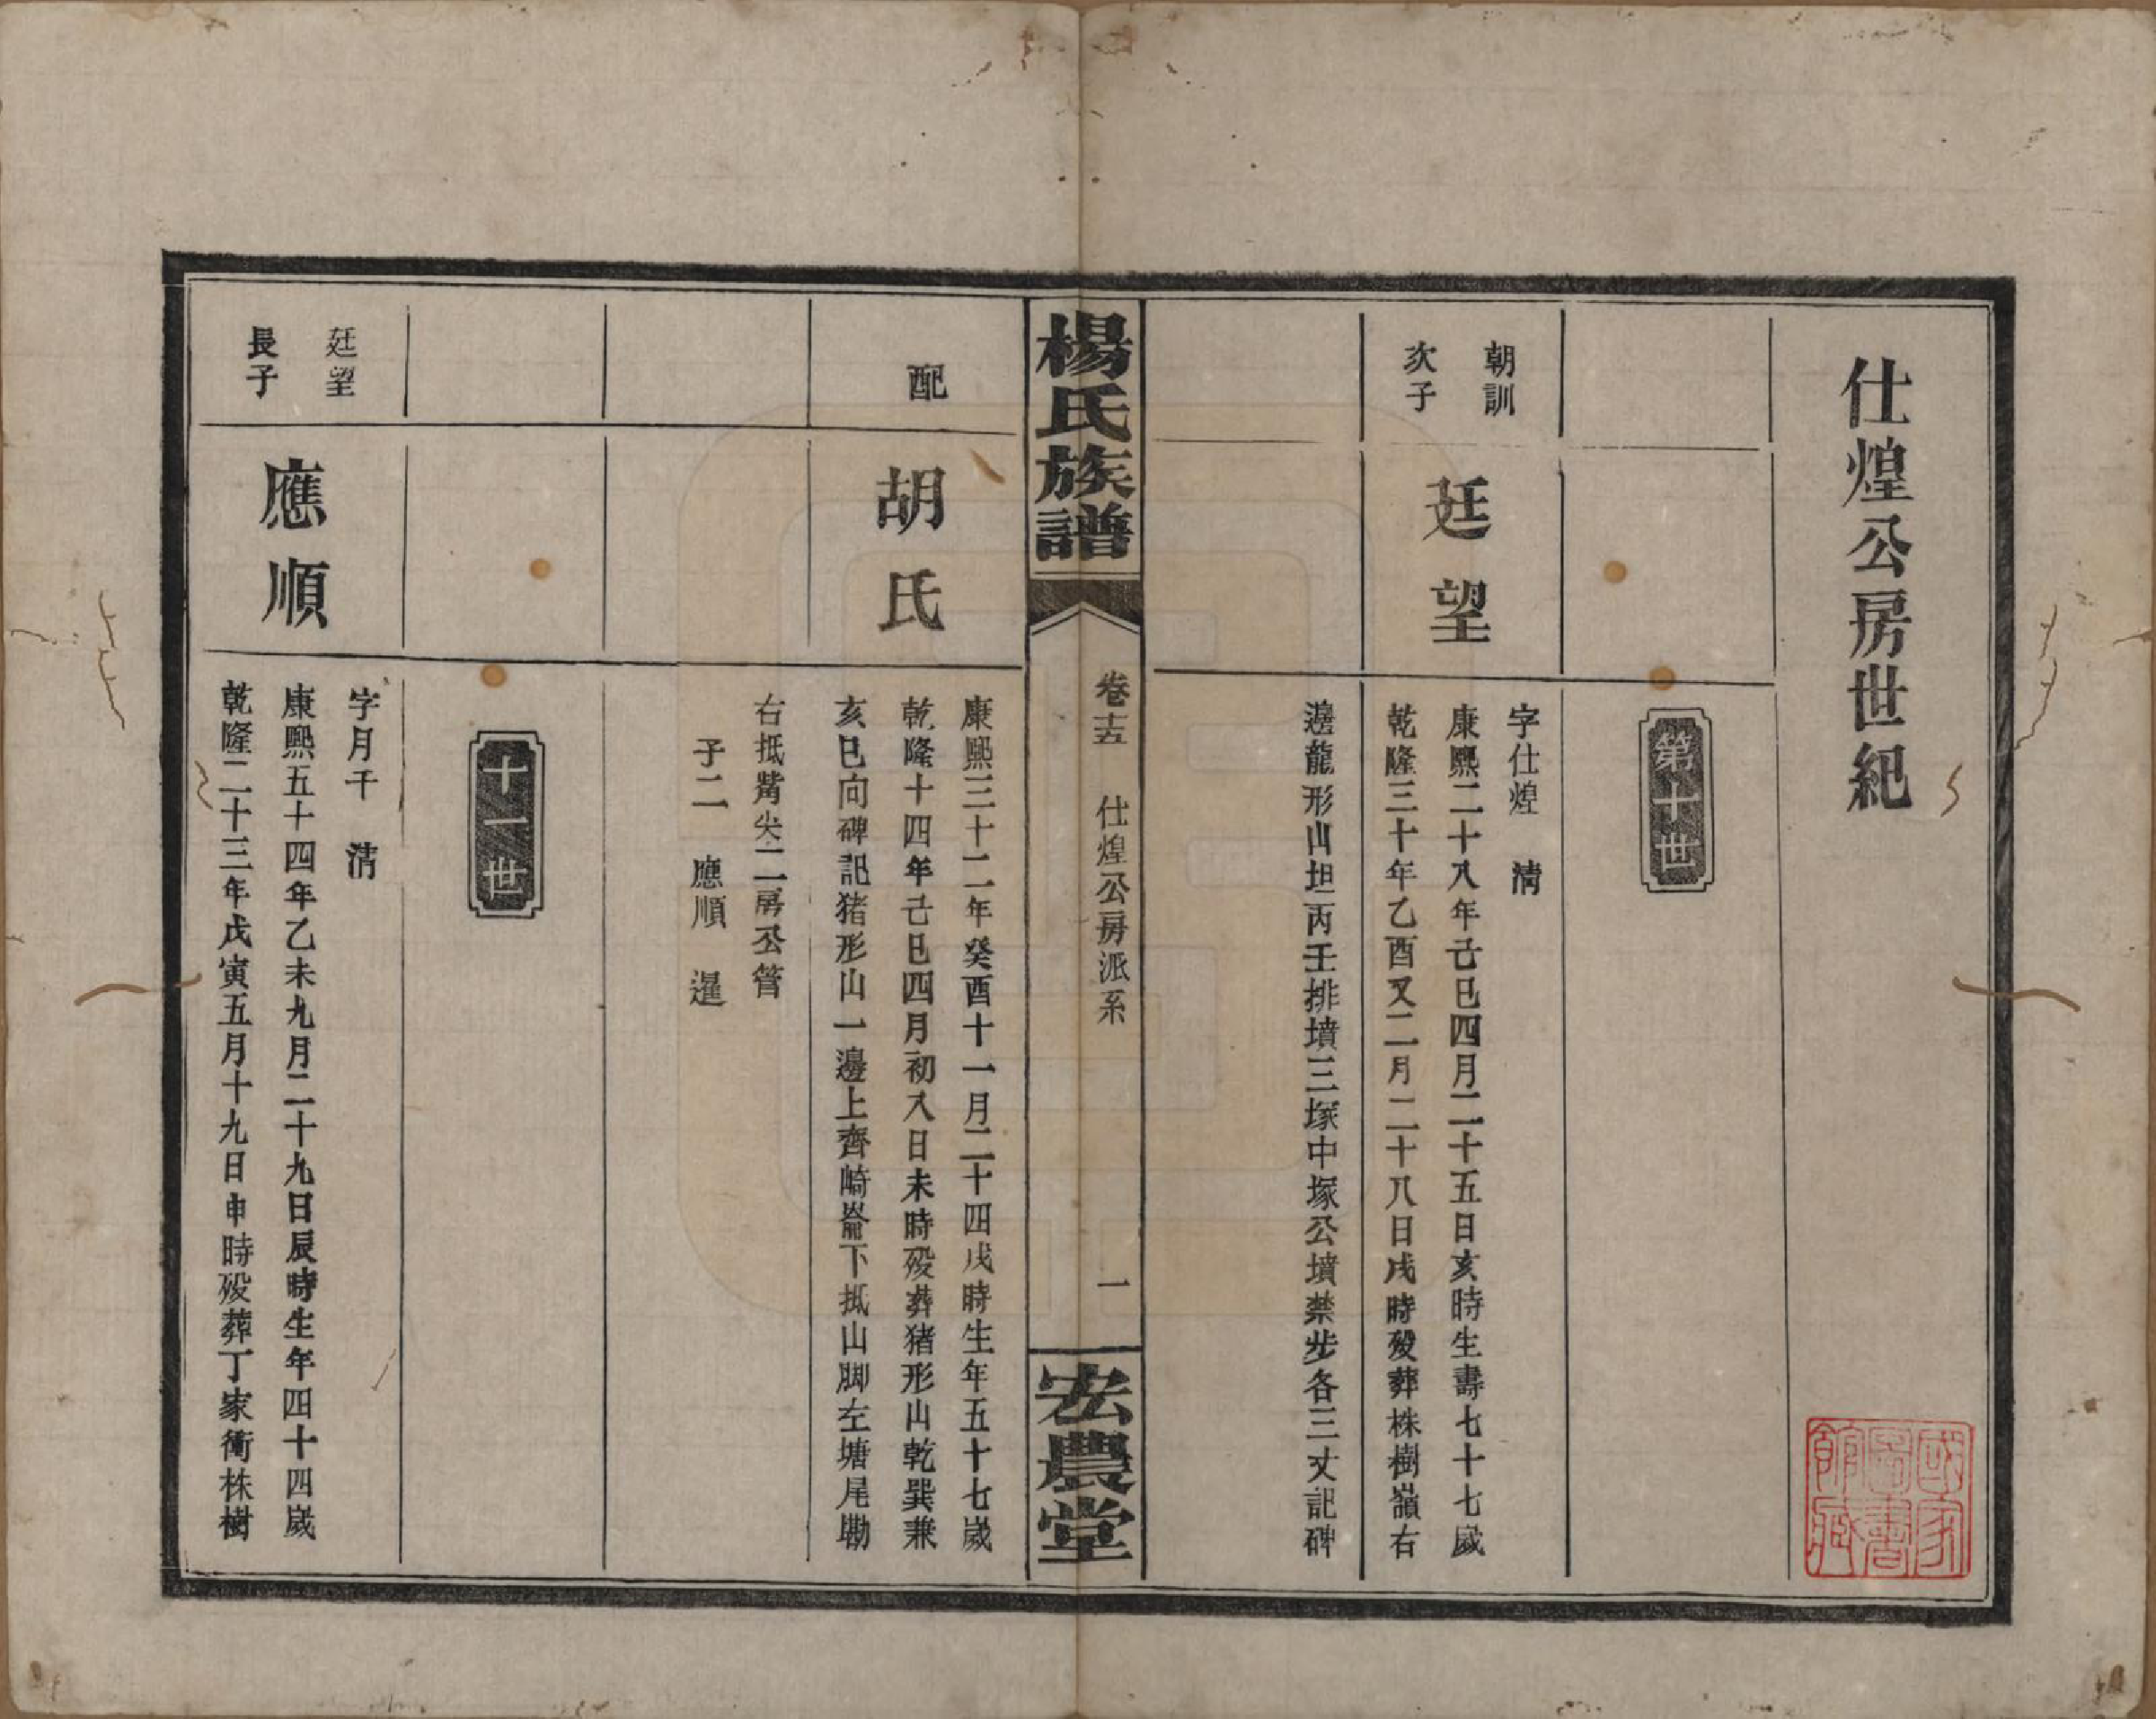 仕煌公房世紀
第十世
朝訓
次子
廷望
字仕煌 清
康熙二十八年己巳四月二十五日亥時生壽七十七歲
乾隆三十年乙酉又二月二十八日戌時歿葬株樹嶺右
邊龍形山坦丙壬排墳三塚中塚公墳禁步各三丈記碑
楊氏族譜
卷十五 仕煌公房派系 一
宏農堂
配
胡氏
康熙三十二年癸酉十一月二十四戌時生年五十七歲
乾隆十四年己巳四月初八日未時歿葬猪形山乾巽兼
亥巳向碑記猪形山一邊上齊崎崙下抵山脚左塘尾墈
右抵觜尖二房公管
子二 應順 暹
十一世
廷望
長子
應順
字月千 清
康熙五十四年乙未九月二十九日辰時生年四十四歲
乾隆二十三年戊寅五月十九日申時歿葬丁家衝株樹
國家
圖書
館藏